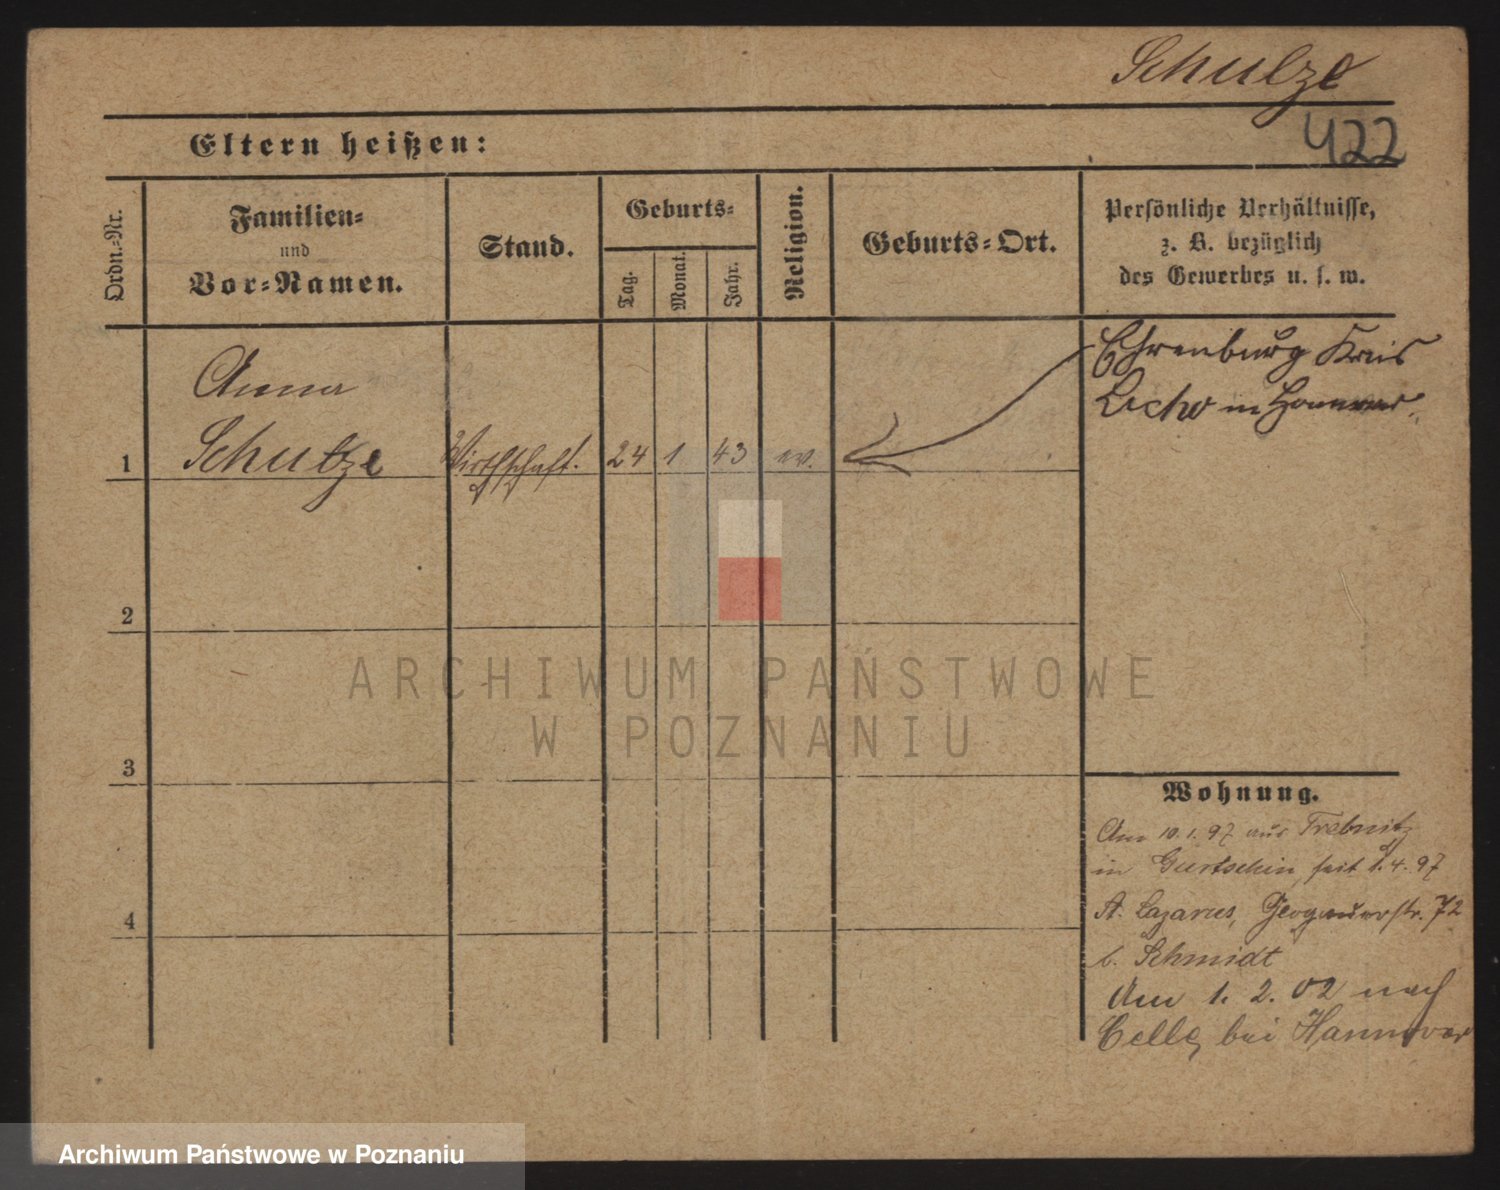 Schulze
422
Eltern heißen:
Ordn.-Nr.
Familien-
und
Vor-Namen.
Stand.
Geburts-
Tag.
Monat.
Jahr.
Religion.
Geburts-Ort.
Persönliche Verhältnisse,
z. B. bezüglich
des Gewerbes u. s. w.
Anna
1 Schulze Wirthschaft. 24 1 43 ev.
Ehrenburg Kreis
in Hannover.
2
3
4
Wohnung.
Am 10.1.97 aus Trebnitz
in Gurtschin, seit 1.4.97
St. Lazarus, Glogauerstr. 72
b. Schmidt
Am 1. 2. 02 nach
Celle bei Hannover
ARCHIWUM PAŃSTWOWE
W POZNANIU
Archiwum Państwowe w Poznaniu